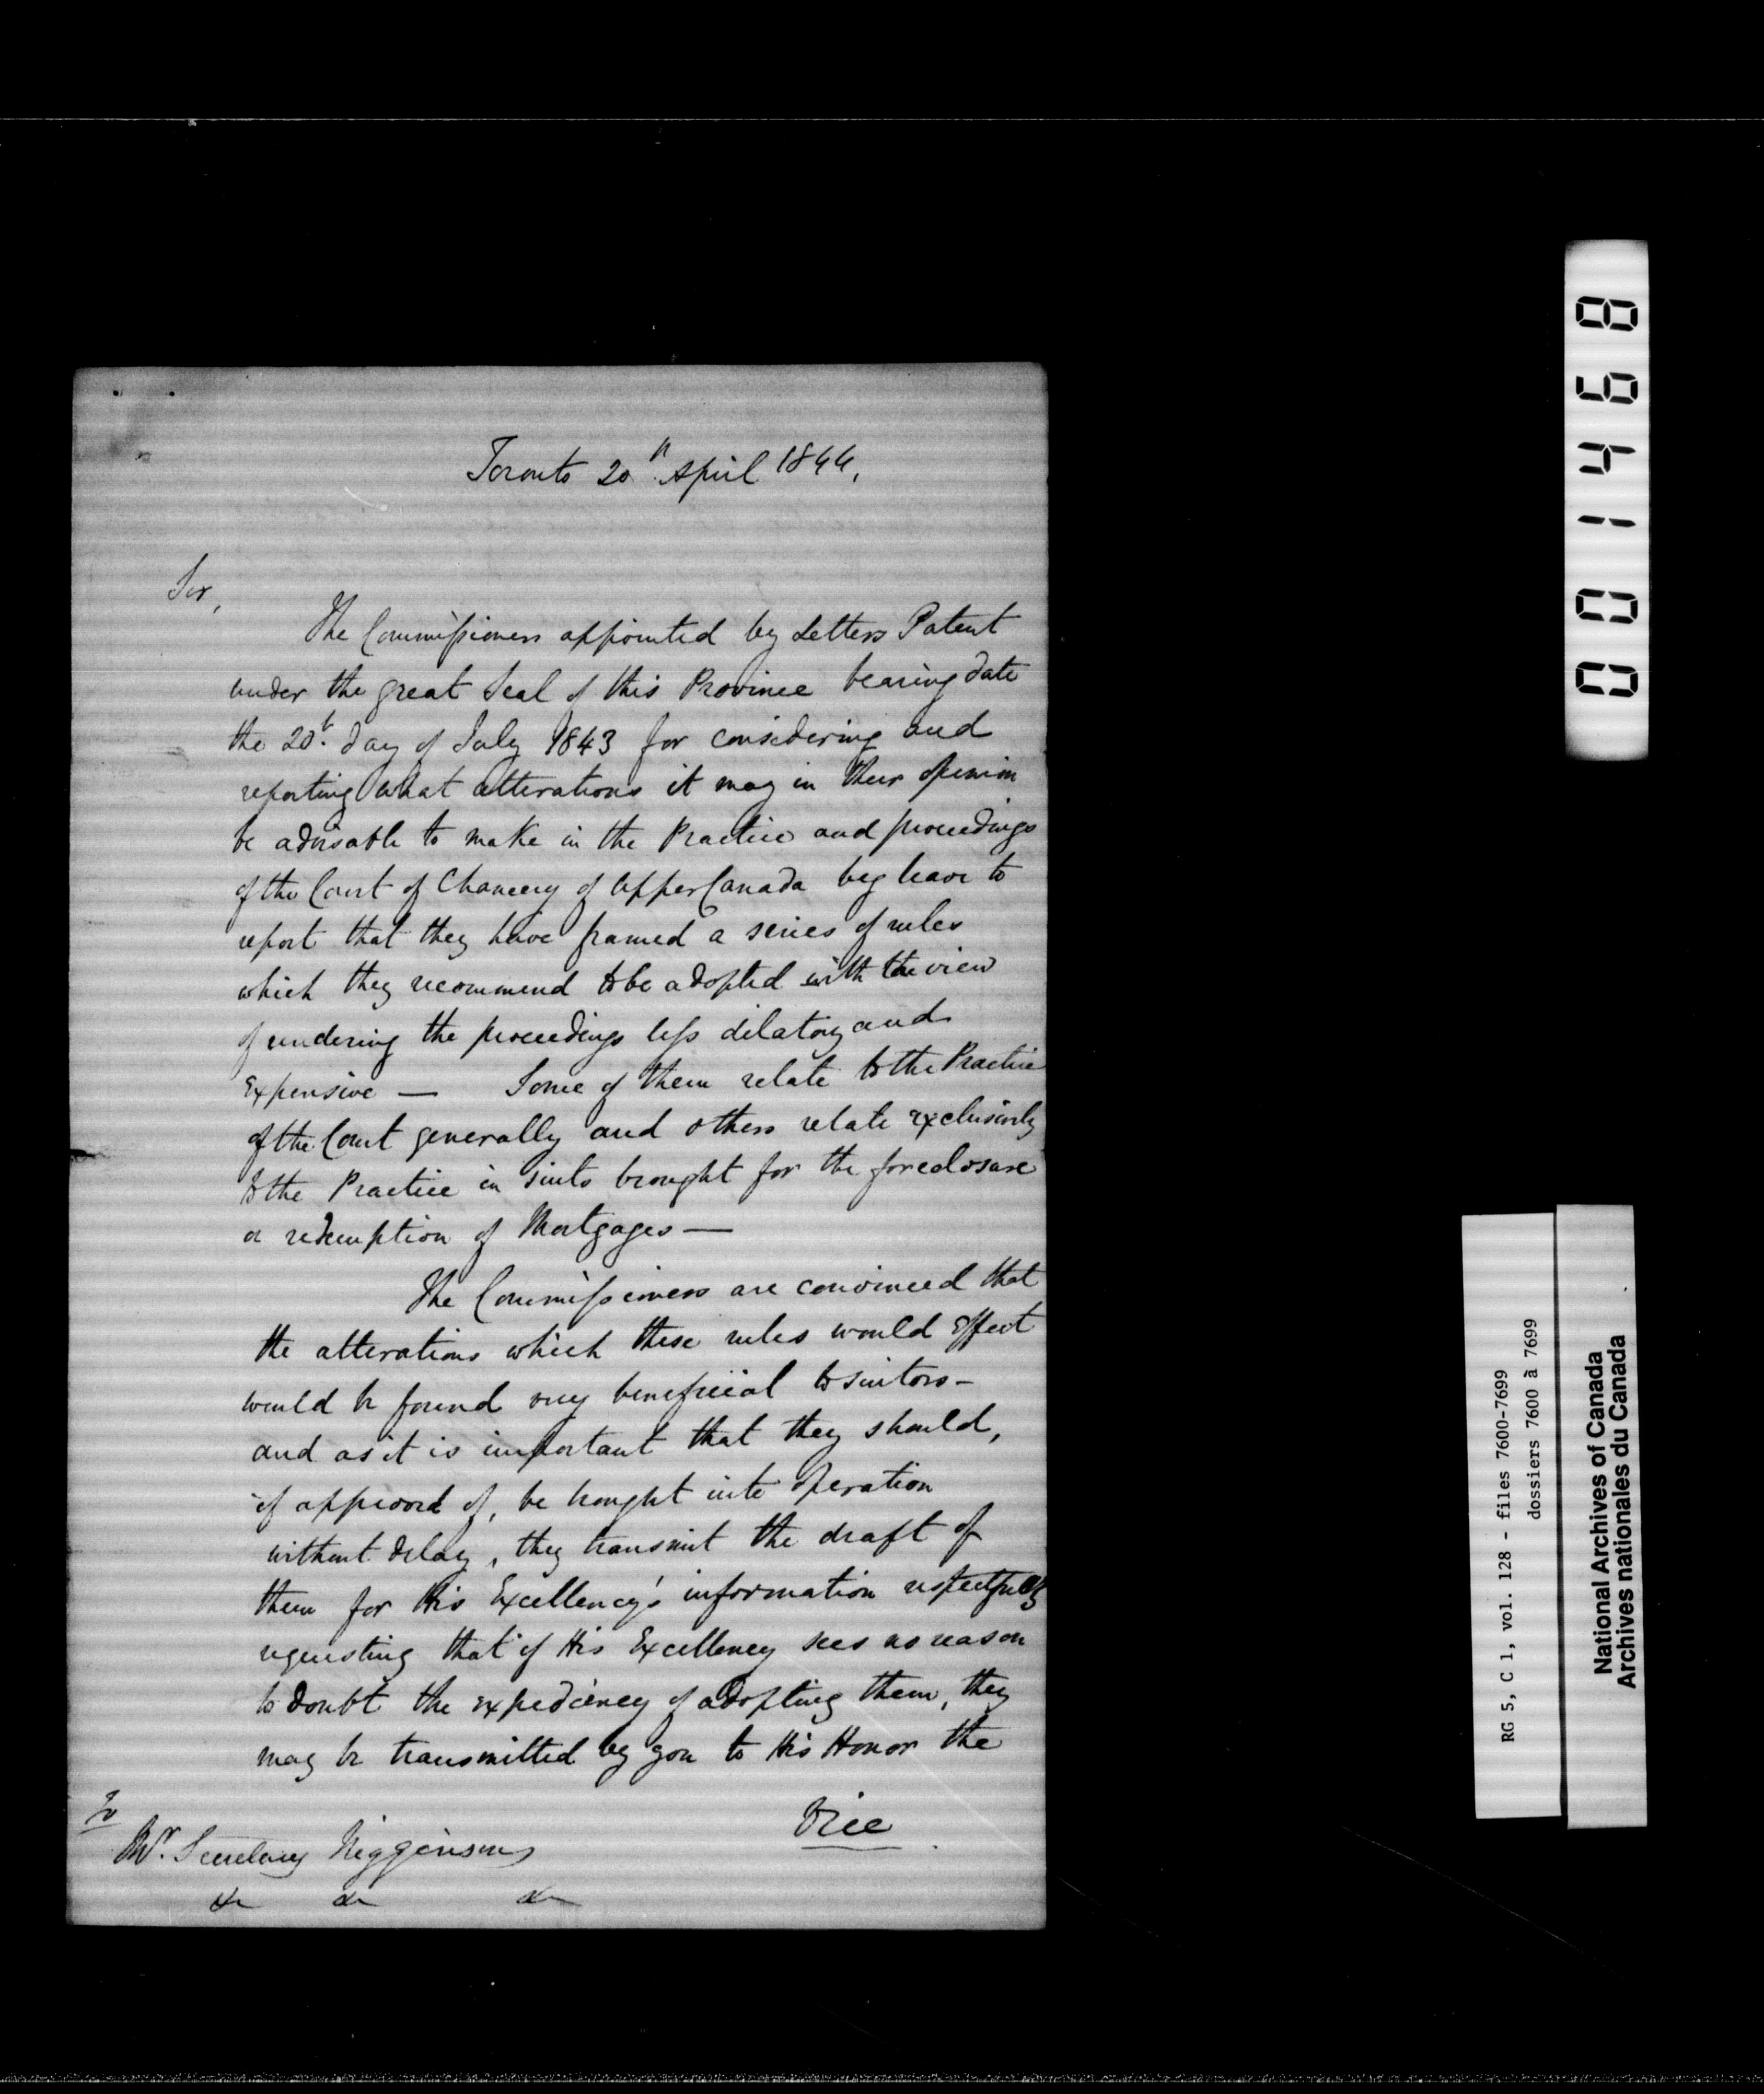 Toronto 20th April 1844,
Sir,
The Commissioners appointed by Letters Patent
under the great Seal of this Province bearing date
the 20th day of July 1843 for considering and
reporting what alterations it may in their opinion
be advisable to make in the Practice and proceedings
of the Court of Chancery of Upper Canada beg leave to
report that they have framed a series of rules
which they recommend to be adopted with the view
of rendering the proceedings less dilatory and
Expensive — Some of them relate to the Practice
of the Court generally and others relate exclusively
to the Practice in suits brought for the foreclosure
or redemption of Mortgages —
The Commissioners are convinced that
the alterations which these rules would effect
would be found very beneficial to suitors —
and as it is important that they should,
if approved of, be brought into operation
without delay, they transmit the draft of
them for His Excellency's information respectfully
requesting that if His Excellency sees no reason
to doubt the expediency of adopting them, they
may be transmitted by you to His Honor the
Vice
To
Mr. Secretary Higginson
&c &c &c
001468
RG 5, C 1, vol. 128 - files 7600-7699
dossiers 7600 à 7699
National Archives of Canada
Archives nationales du Canada